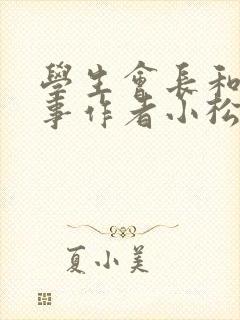 學生會長和
事作者小松
夏小美